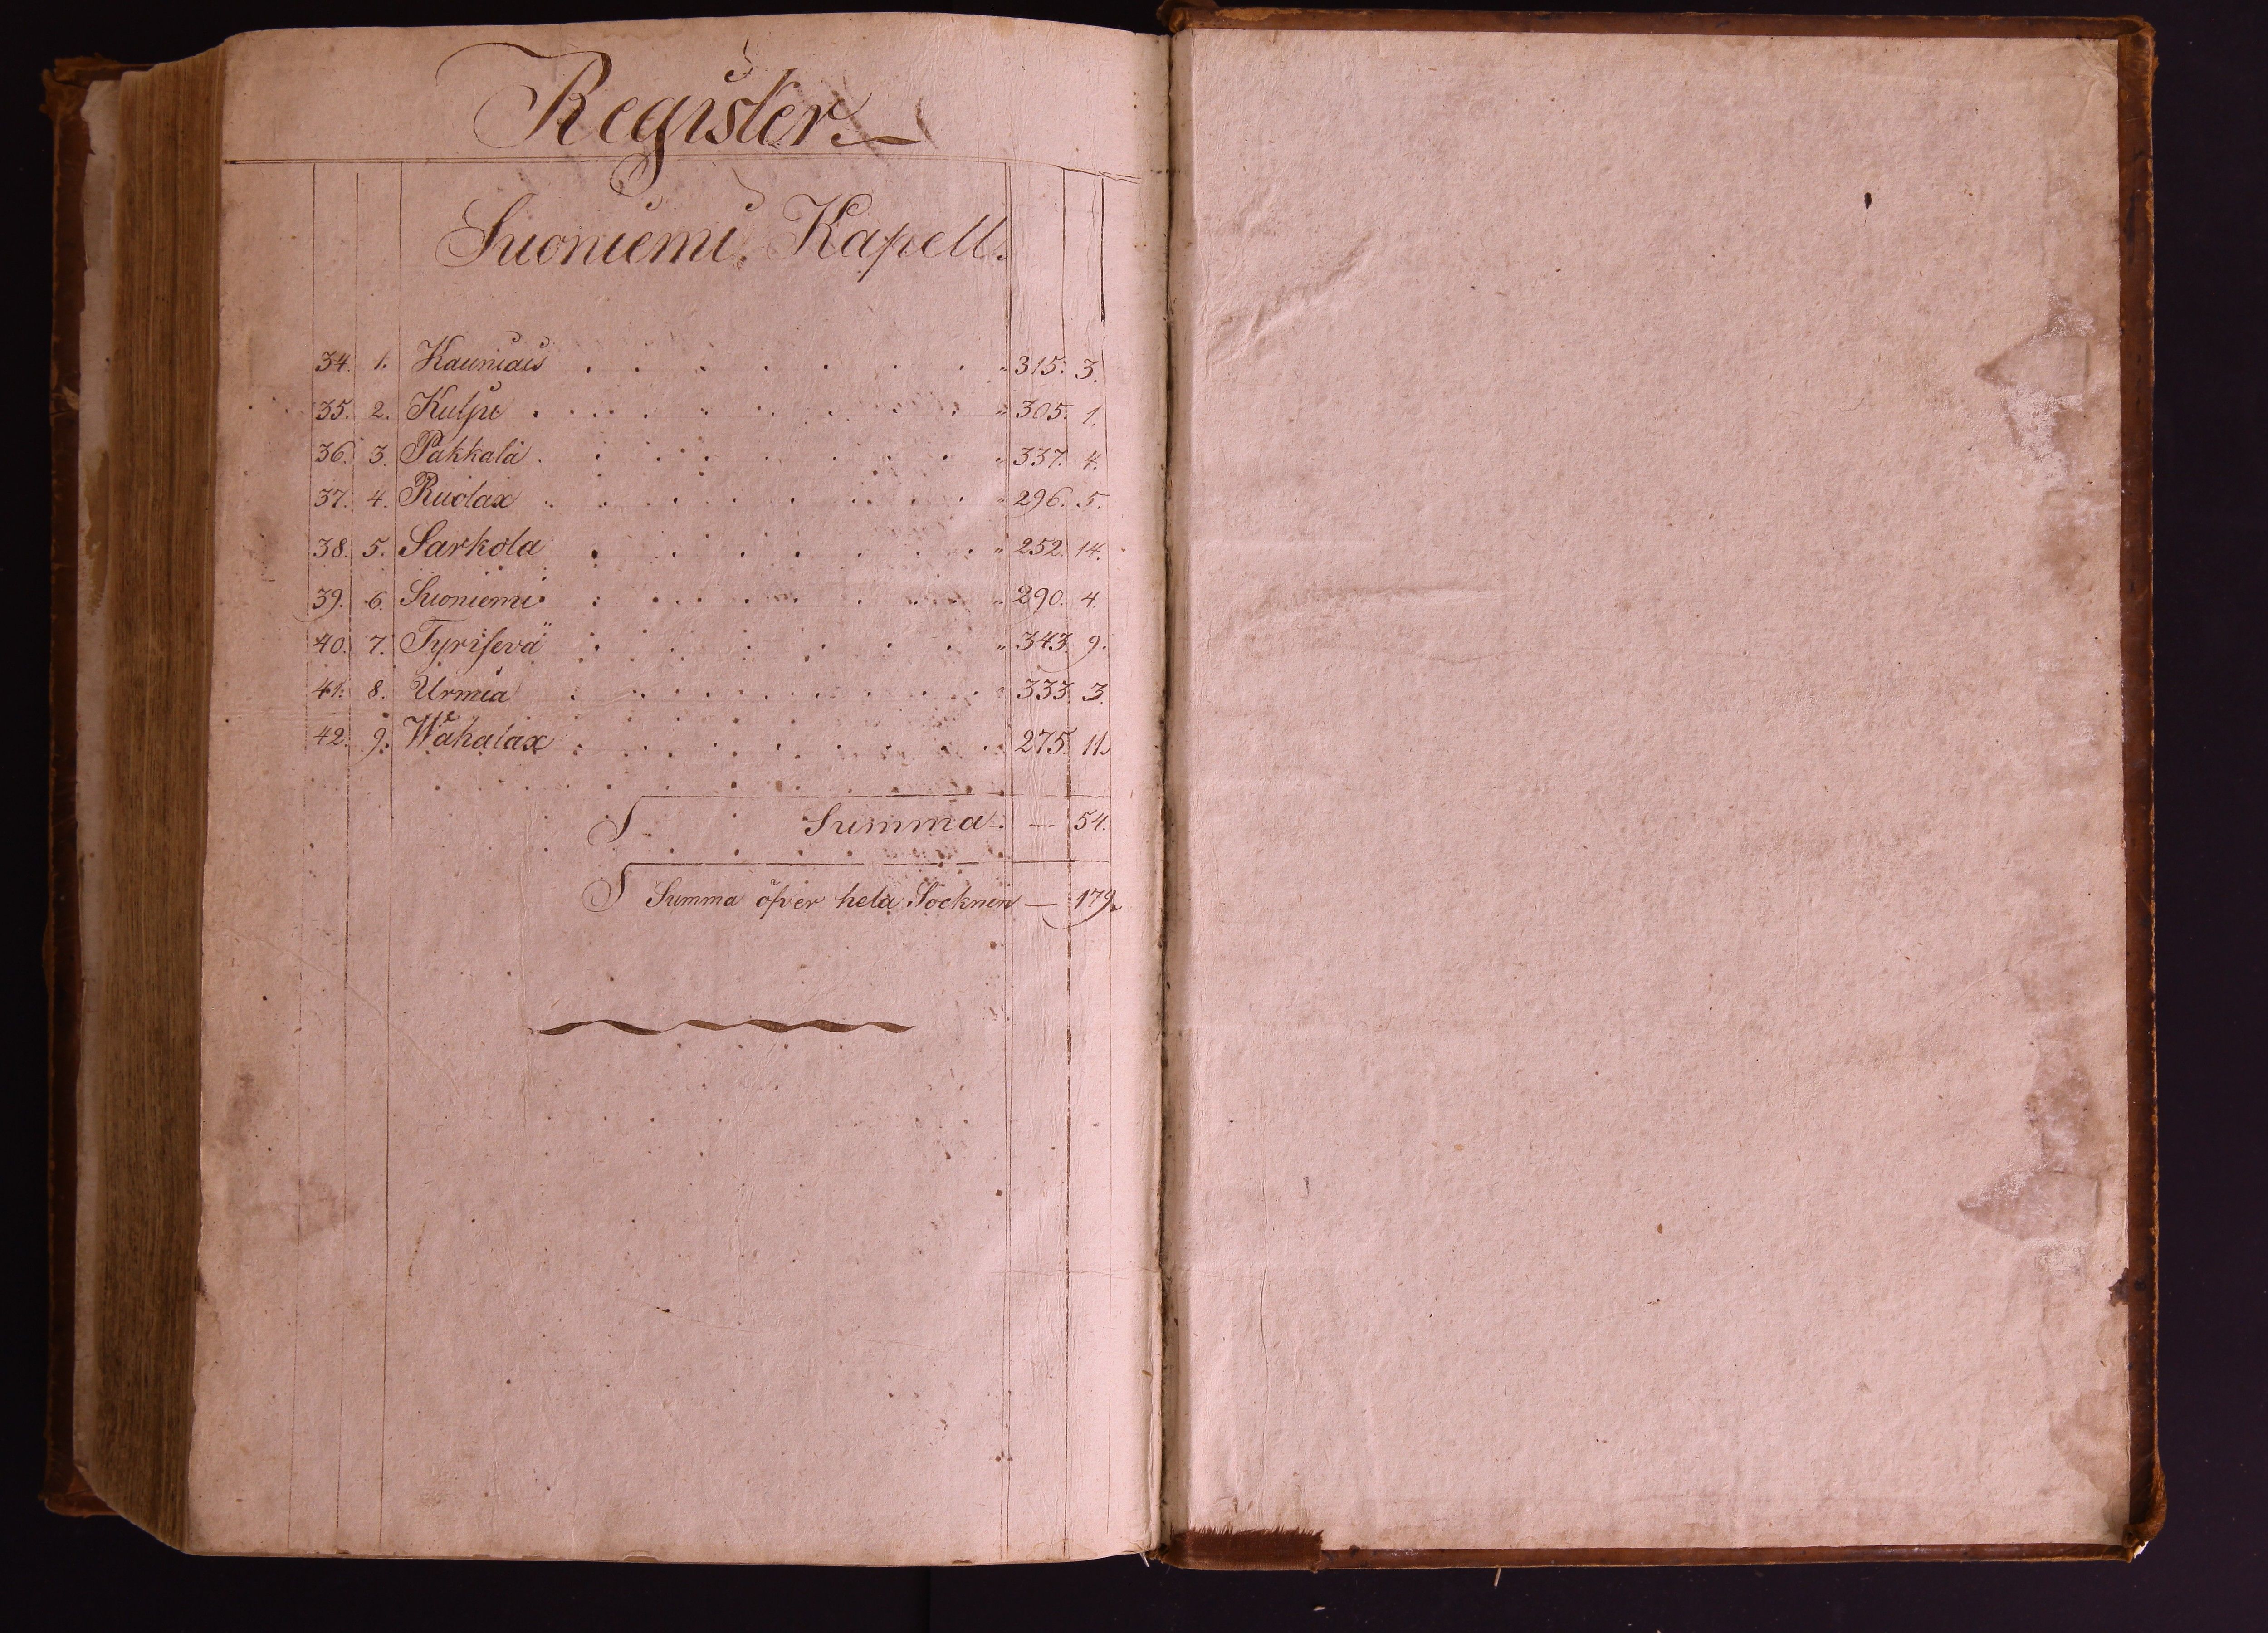 Register.
Suoniemi Kapell.
34. 1. Kauniais . . . . . . . " 315. 3.
35. 2. Kulju . . . . . . . " 305. 1.
36. 3. Pakkala . . . . . . . " 337. 4.
37. 4. Ruolax . . . . . . . " 296. 5.
38. 5. Sarkola . . . . . . . " 252. 14.
39. 6. Suoniemi . . . . . . . " 290. 4.
40. 7. Tyrisevä . . . . . . . " 343. 9.
41. 8. Urmia . . . . . . . " 333. 3.
42. 9. Wahalax . . . . . . . " 275. 11.
Summa. — 54.
Summa öfver hela Socknen — 179.